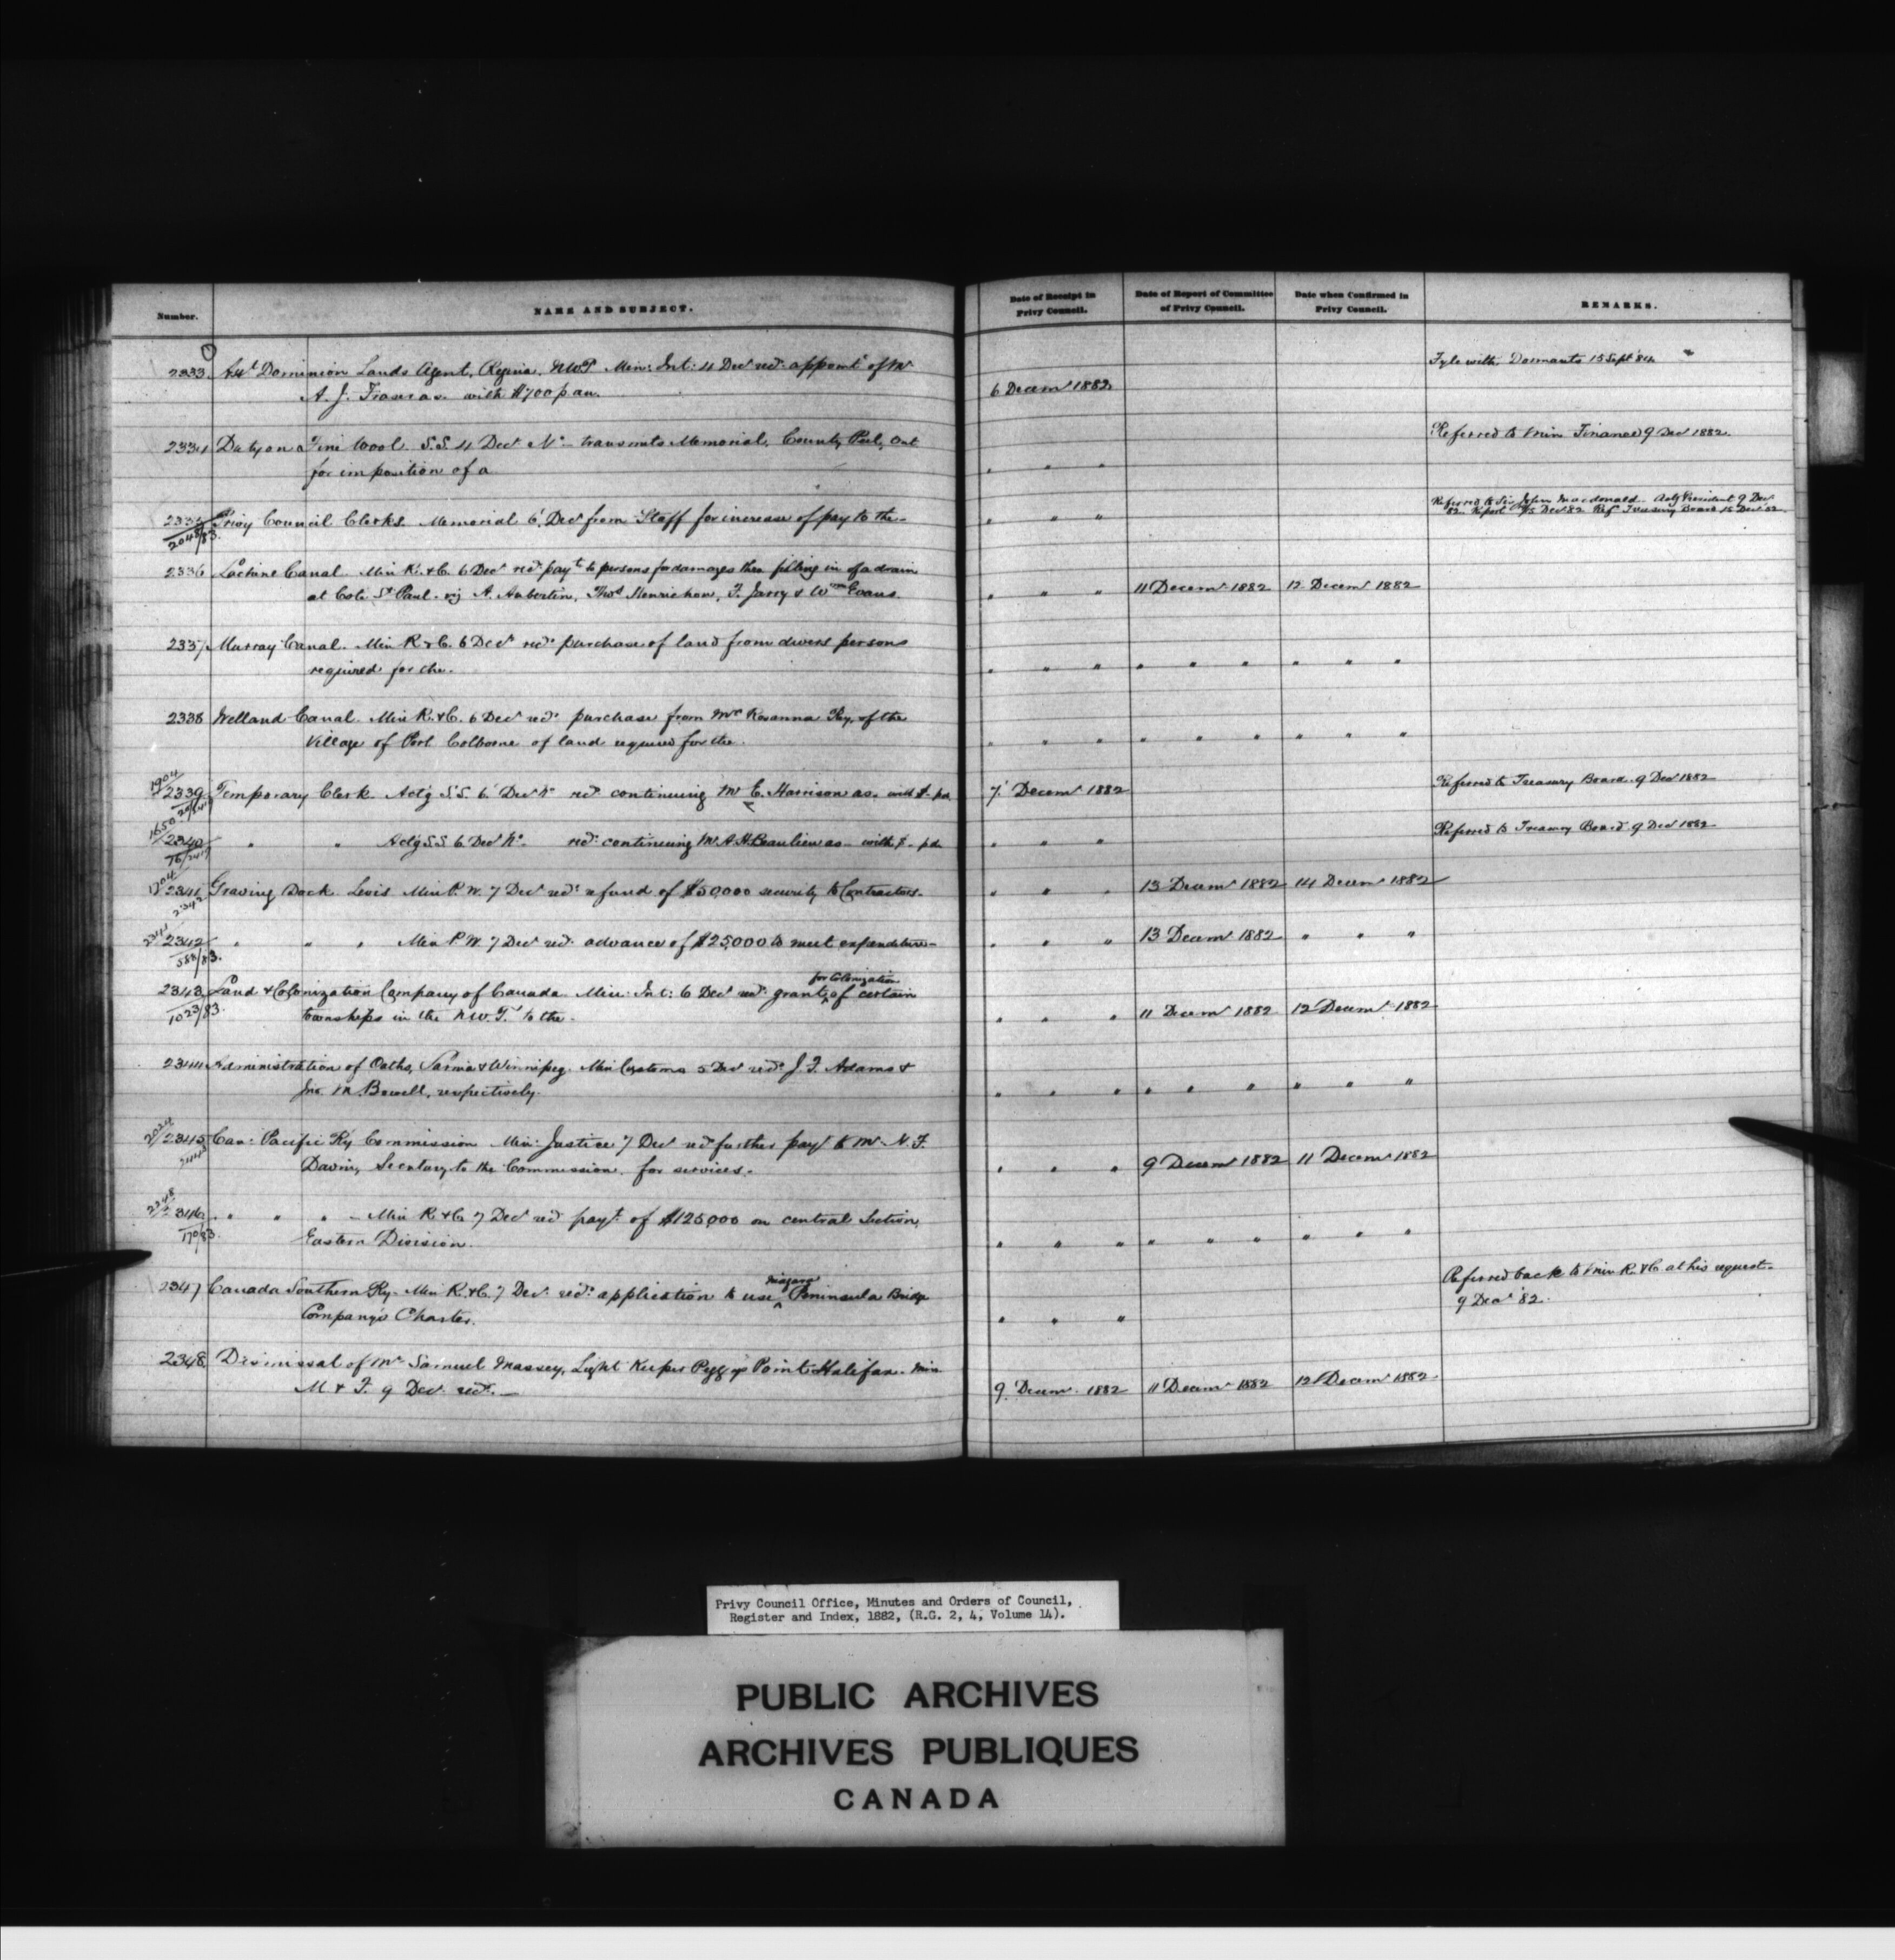 Number.
NAME AND SUBJECT.
Date of Receipt in Privy Council.
Date of Report of Committee of Privy Council.
Date when Confirmed in Privy Council.
REMARKS.
2333 Asst Dominion Lands Agent, Regina. N.W.T. Min: Int: 4 Decr recs appomt of Mr
A. J. Fraser as with $700 p an.
6 Decemr 1882
Fyle with Dormants 15 Sept '84
2334 Duty on Fine Wool S.S. 4 Decr No — transmits Memorial, County Peel, Ont
for imposition of a
" " "
Referred to Min Finance 9 Decr 1882.
2335 Privy Council Clerks. Memorial 6 Decr from Staff for increase of pay to the—
2048/83.
" " "
Referred to Sir John Macdonald Actg President 9 Decr
82. Report 15 Decr 82 Ref Treasury Board 15 Decr 82.
2336 Lachine Canal. Min R. & C. 6 Decr recs payt to persons for damages thro filling in of a drain
at Cote St Paul. viz A. Aubertin, Thos , F. Jarry & Wm Evans.
" " " 11 Decemr 1882 12 Decemr 1882
2337 Murray Canal. Min R. & C. 6 Decr recs purchase of land from divers persons
required for the.
" " " " " " " " "
2338 Welland Canal. Min R. & C. 6 Decr recs purchase from Mrs Rosanna , of the
Village of Port Colborne of land required for the.
" " " " " " " " "
1904
2339 Temporary Clerk. Actg S.S. 6 Decr No recs continuing Mr E. Harrison as. with $- pd.
7 Decemr 1882
Referred to Treasury Board 9 Decr 1882
1650
2340 " " Actg S.S. 6 Decr No. recs continuing Mr A. H. Beaulieu as — with $- p d.
" " "
Referred to Treasury Board 9 Decr 1882
2341 Graving Dock Levis Min P. W. 7 Decr recs refund of $50,000 security to Contractors.
2342
" " " 13 Decemr 1882 14 Decemr 1882
2341
2342 " " " Min P. W. 7 Decr recs advance of $25,000 to meet expenditure—
588/83.
" " " 13 Decemr 1882 " " "
2343 Land & Colonization Company of Canada. Min: Int: 6 Decr recs grant for Colonization of certain
1023/83.
townships in the N.W.T. to the.
" " " 11 Decemr 1882 12 Decemr 1882
2344 Administration of Oaths, Sarnia & Winnipeg. Min Customs 5 Decr recs J. F. Adams &
Jno. M. Bowell, respectively.
" " " " " " " " "
2345 Can: Pacific Ry Commission Min: Justice 7 Decr recs further payt to Mr. N. F.
Davin, Secretary to the Commission, for services.
" " " 9 Decemr 1882 11 Decemr 1882
2346 " " " — Min R. & C. 7 Decr recs payt. of $125,000 on central Section,
170/83.
Eastern Division.
" " " " " " " " "
2347 Canada Southern Ry. Min R. & C. 7 Decr recs application to use Niagara Peninsula Bridge
Company's Charter.
" " "
Referred back to Min R. & C. at his request.
9 Decr '82.
2348 Dismissal of Mr Samuel Massey, Light Keeper Peggys Point Halifax. Min
M & F. 9 Decr recs. —
9 Decemr 1882 11 Decemr 1882 12 Decemr 1882
Privy Council Office, Minutes and Orders of Council,
Register and Index, 1882, (R.G. 2, 4, Volume 14).
PUBLIC ARCHIVES
ARCHIVES PUBLIQUES
CANADA